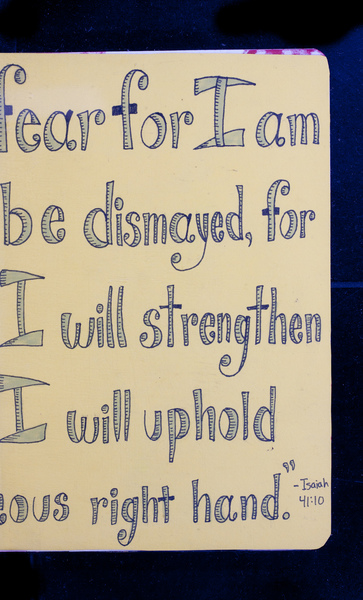 fear for I am
be dismayed, for
I will strengthen
I will uphold
eous right hand."
-Isaiah
41:10